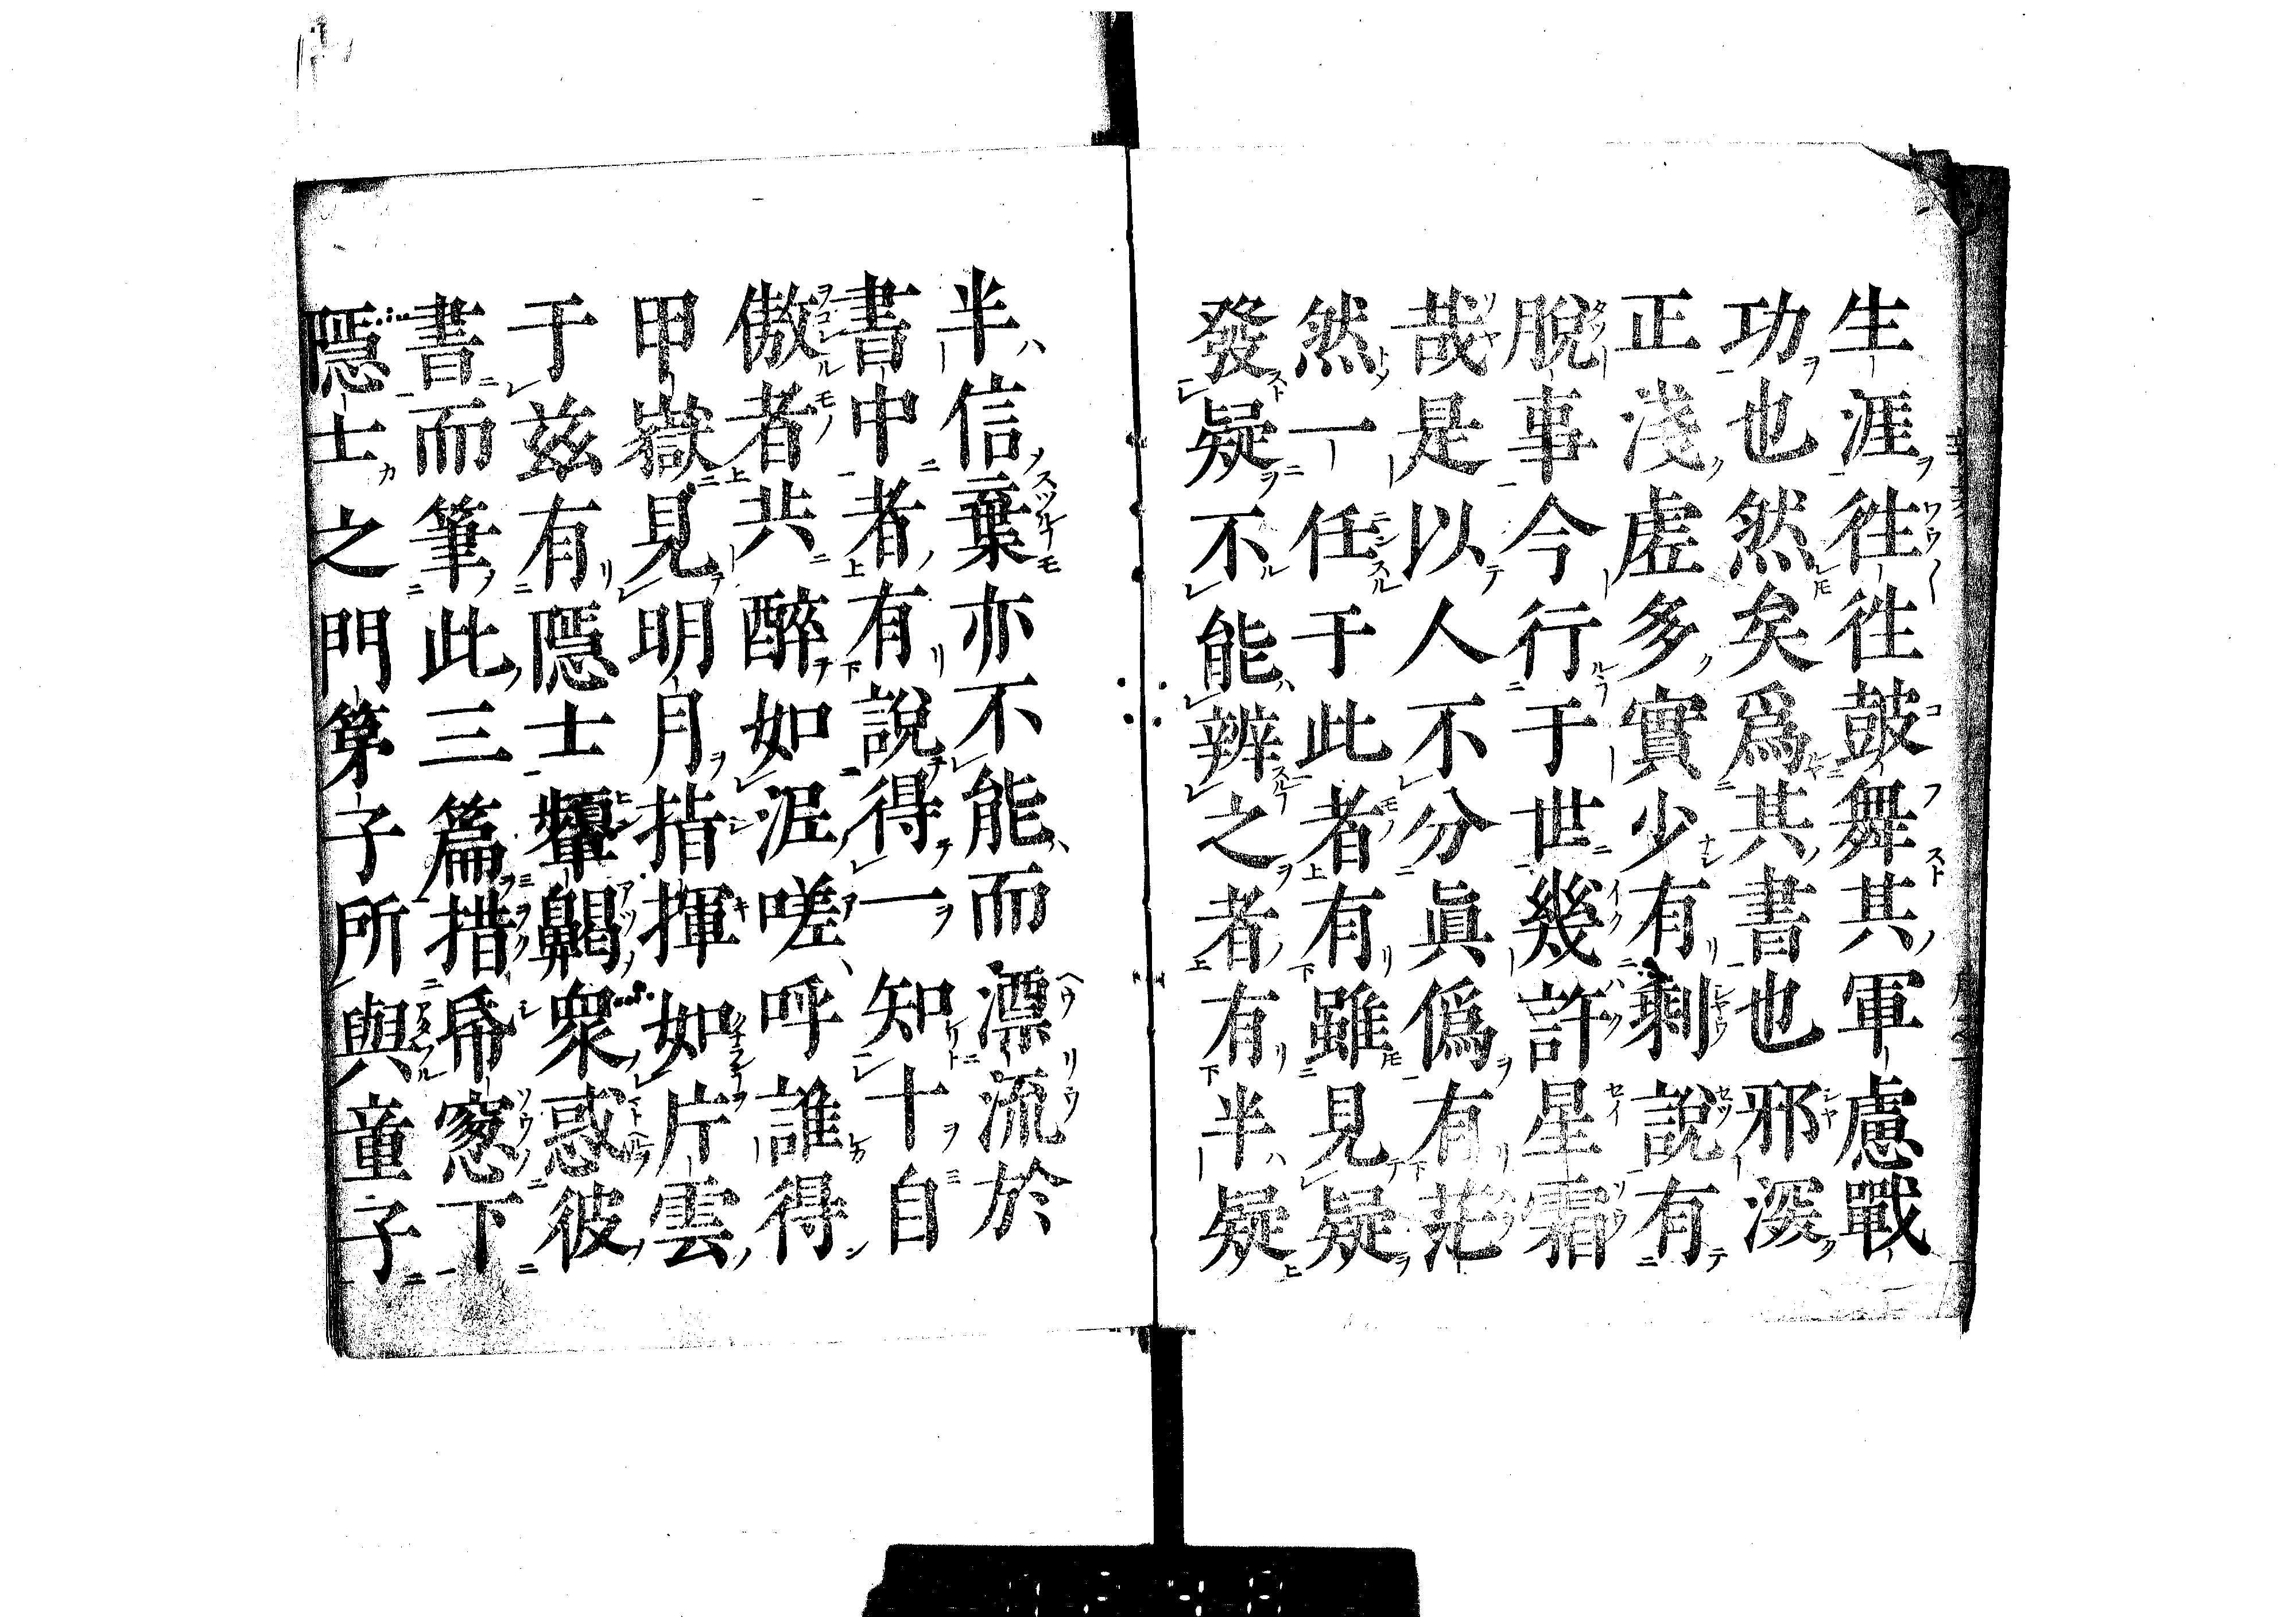 生涯徃徃鼓舞其軍慮戰
功也然矣爲其書也邪深
正淺虚多實少有剩說有
脫事今行于世幾許星霜
哉是以人不分眞僞有茫
然一任于此者有雖見疑
發疑不能辨之者有半疑
半信棄亦不能而漂流於
書中者有說得一知十自
傲者共醉如泥嗟呼誰得
甲嶽見明月指揮如片雲
于茲有隱士顰齃衆惑彼
書而筆此三篇措帋窓下
隱士之門第子所與童子